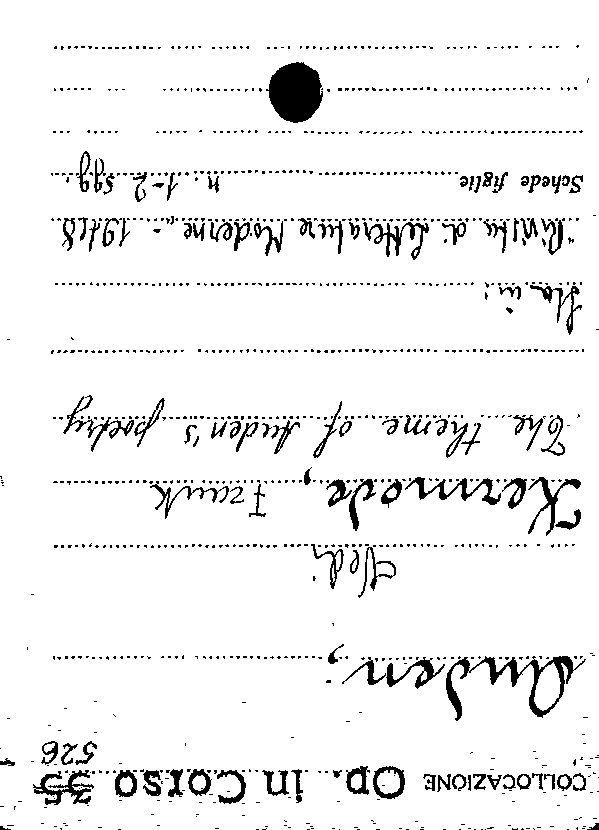 COLLOCAZIONE Op. in Corso 35
526
Auden,
Vedi
Kermode, Frank
The theme of Auden's poetry
Sta in:
"Rivista di Letterature Moderne„ - 1948
Schede figlie n. 1-2 sgg.